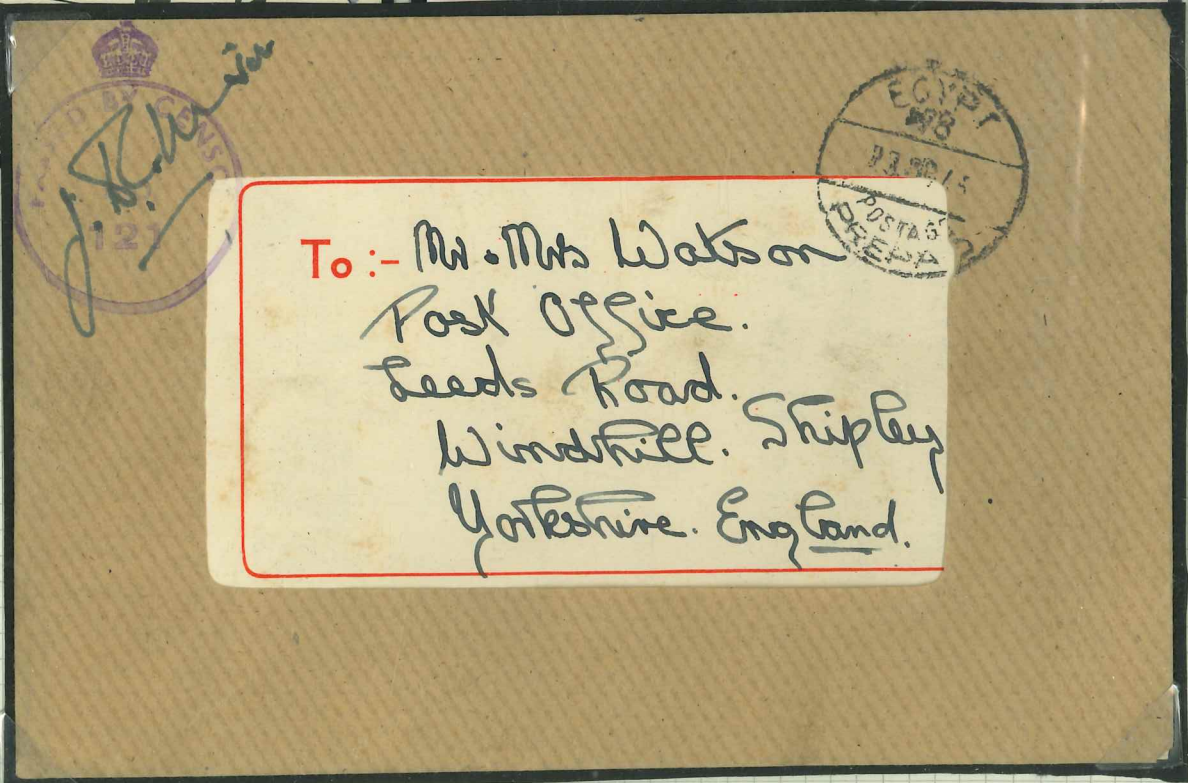 PASSED BY CENSOR
121
EGYPT
POSTAGE
PREPAID
To :- Mr. Mrs Watson
Post Office.
Leeds Road.
Windhill. Shipley
Yorkshire. England.